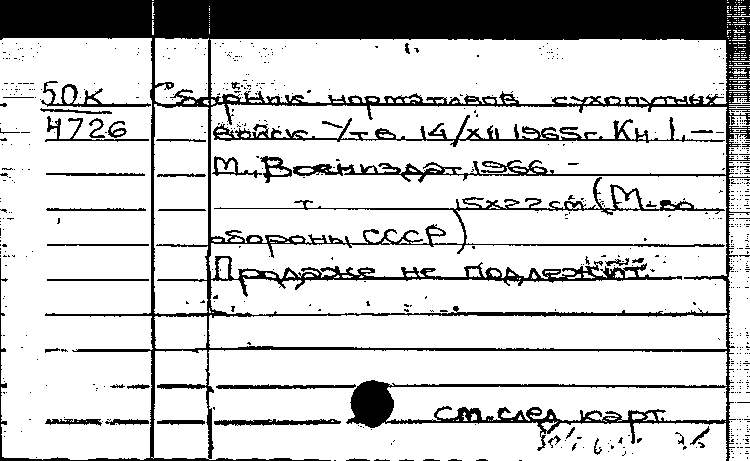 50К Сборник нормативов сухопутных
4726 войск. Утв. 14/XII 1965г. Кн. 1. —
М., Воениздат, 1966. –
т. 15х22 см (М-во
обороны СССР)
Продаже не подлежит.
см. след. карт.